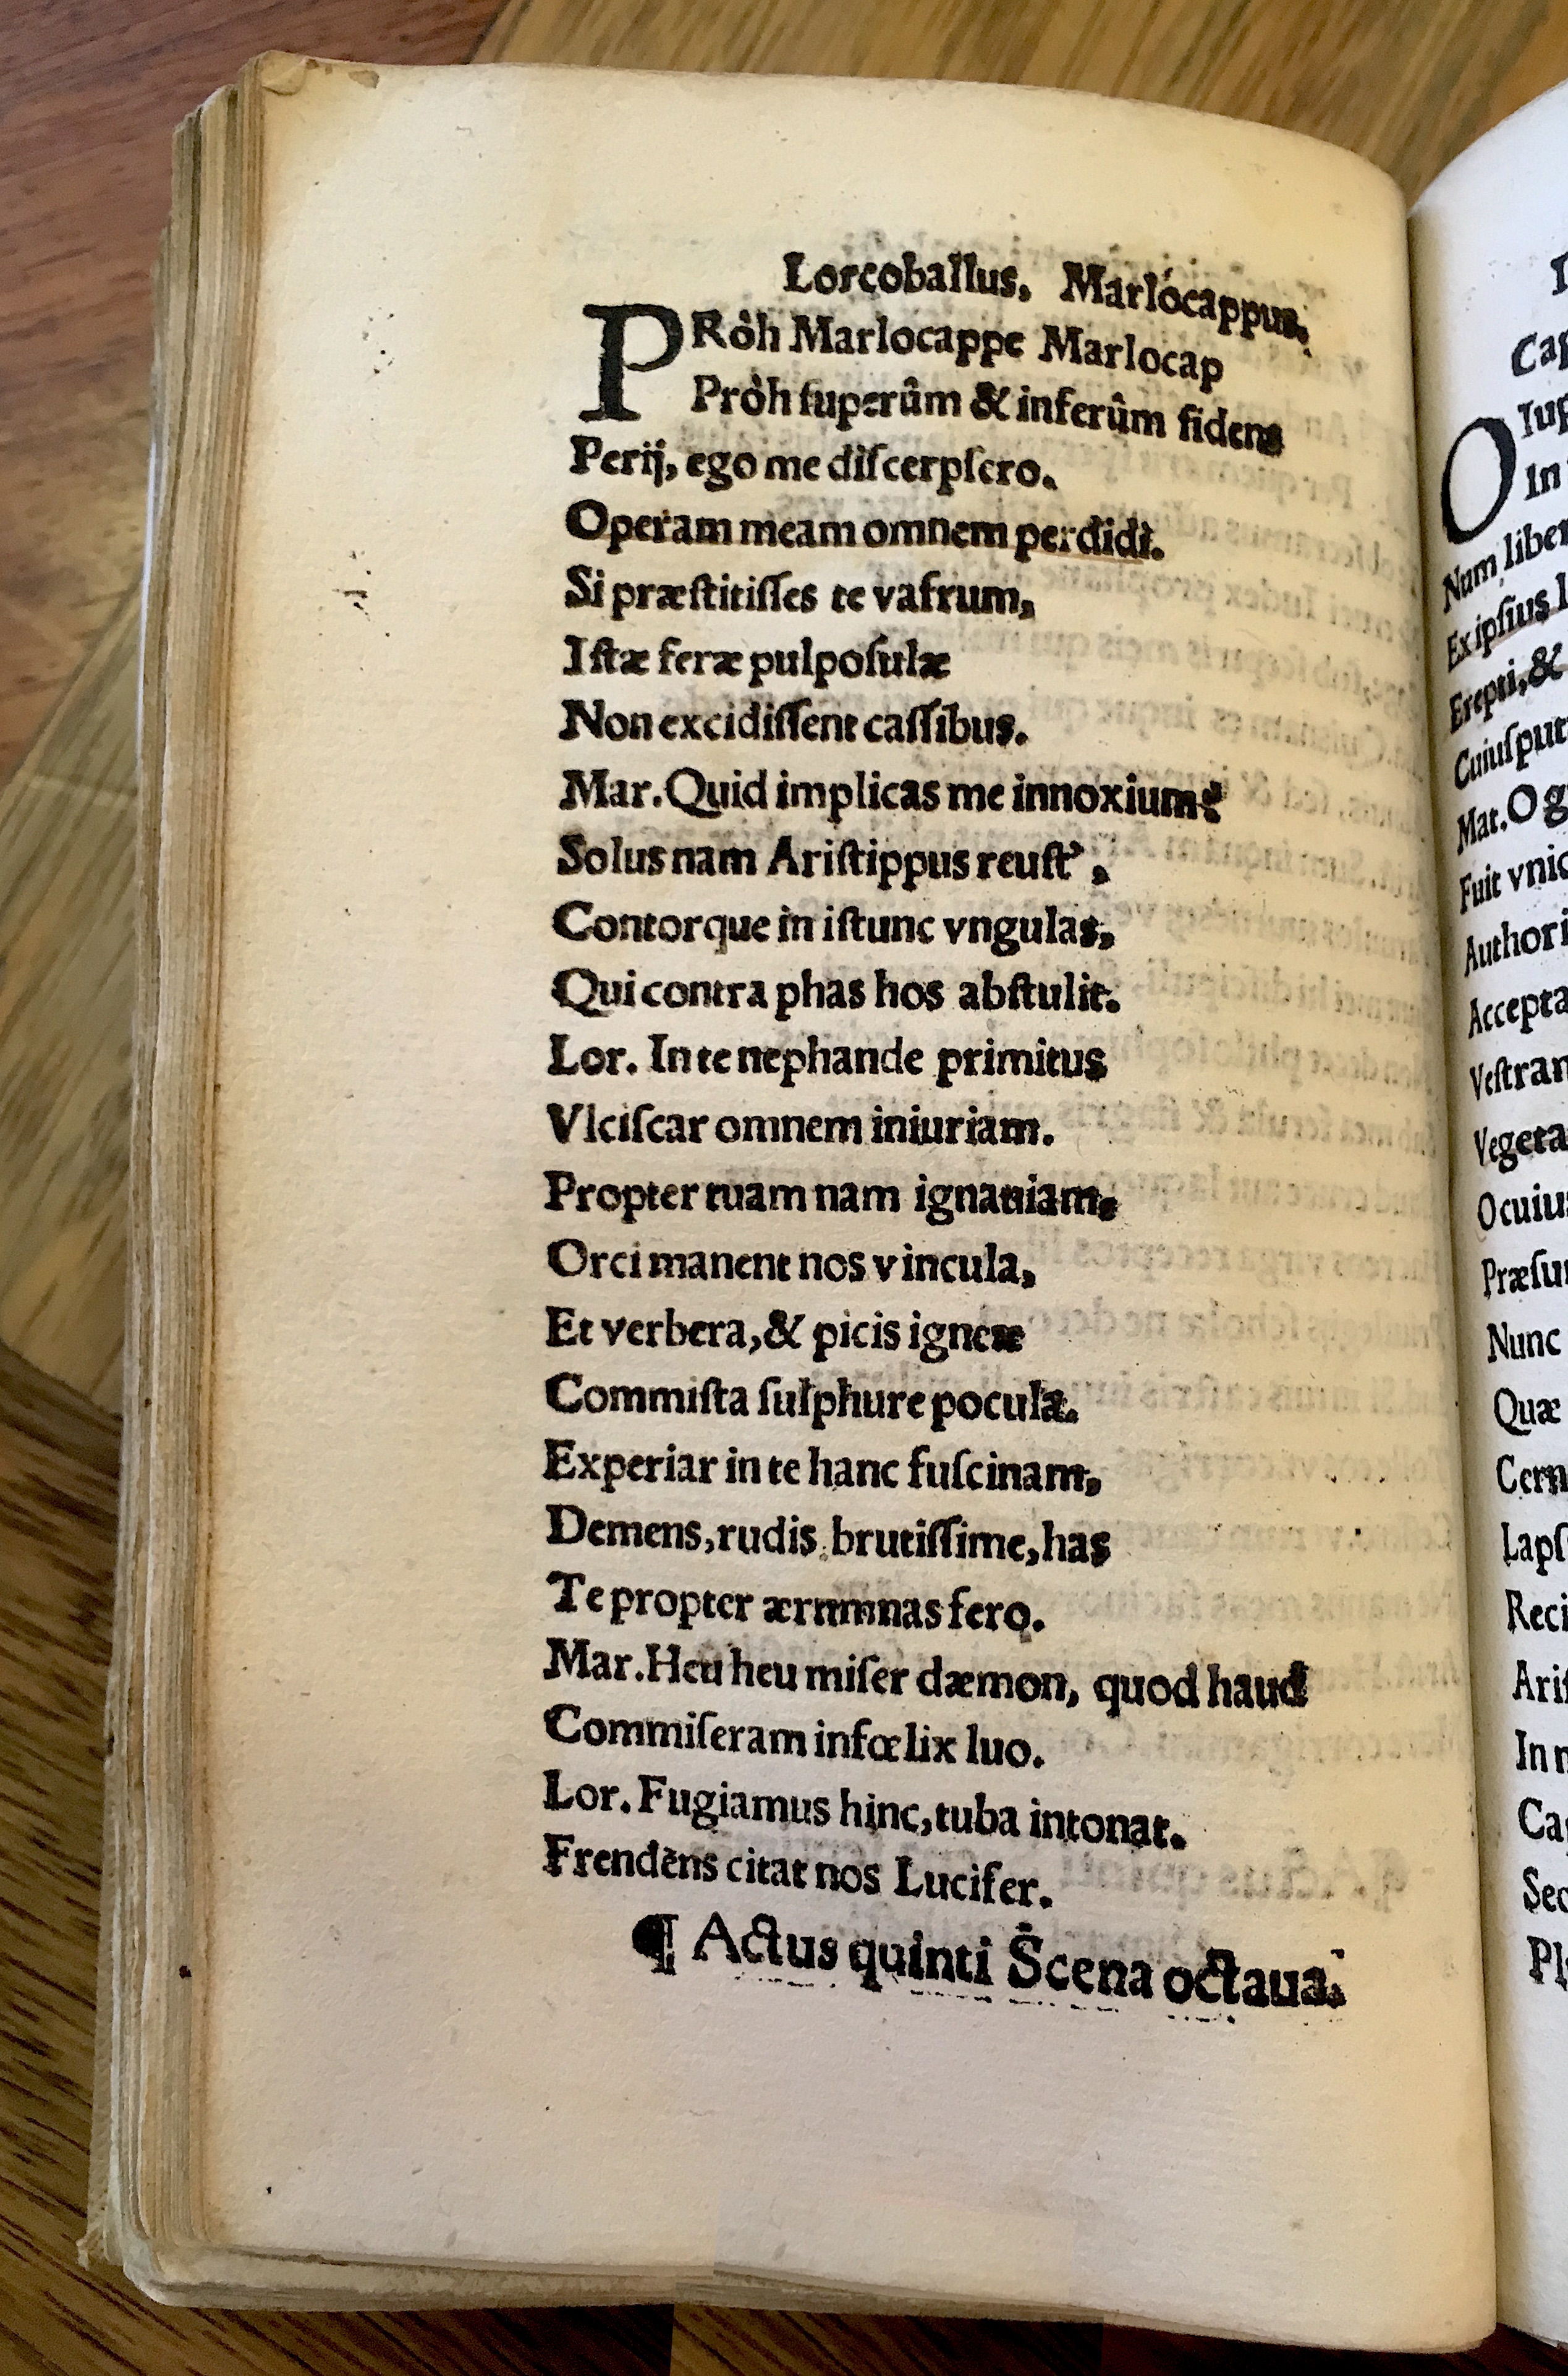 Lorcoballus, Marlócappus.
PRòh Marlocappe Marlocap
Pròh ſuperûm & inferûm fidens
Perij, ego me diſcerpſero.
Operam meam omnem perdidi.
Si præſtitiſſes te vafrum,
Iſtæ feræ pulpoſulæ
Non excidiſſent caſſibus.
Mar. Quid implicas me innoxium?
Solus nam Ariſtippus reuſt’,
Contorque in iſtunc vngulas,
Qui contra phas hos abſtulit.
Lor. In te nephande primitus
Vlciſcar omnem iniuriam.
Propter tuam nam ignauiam,
Orci manent nos vincula,
Et verbera, & picis igneæ
Commiſta ſulphure pocula.
Experiar in te hanc fuſcinam,
Demens, rudis, brutiſſime, has
Te propter ærumnas fero.
Mar. Heu heu miſer dæmon, quod haud
Commiſeram infœlix luo.
Lor. Fugiamus hinc, tuba intonat.
Frendens citat nos Lucifer.
¶ Actus quinti Scena octaua.
In
Num
Ex ipſius
Erepti, &
Mat. O
Fuit
Ocuius
Nunc
Quæ